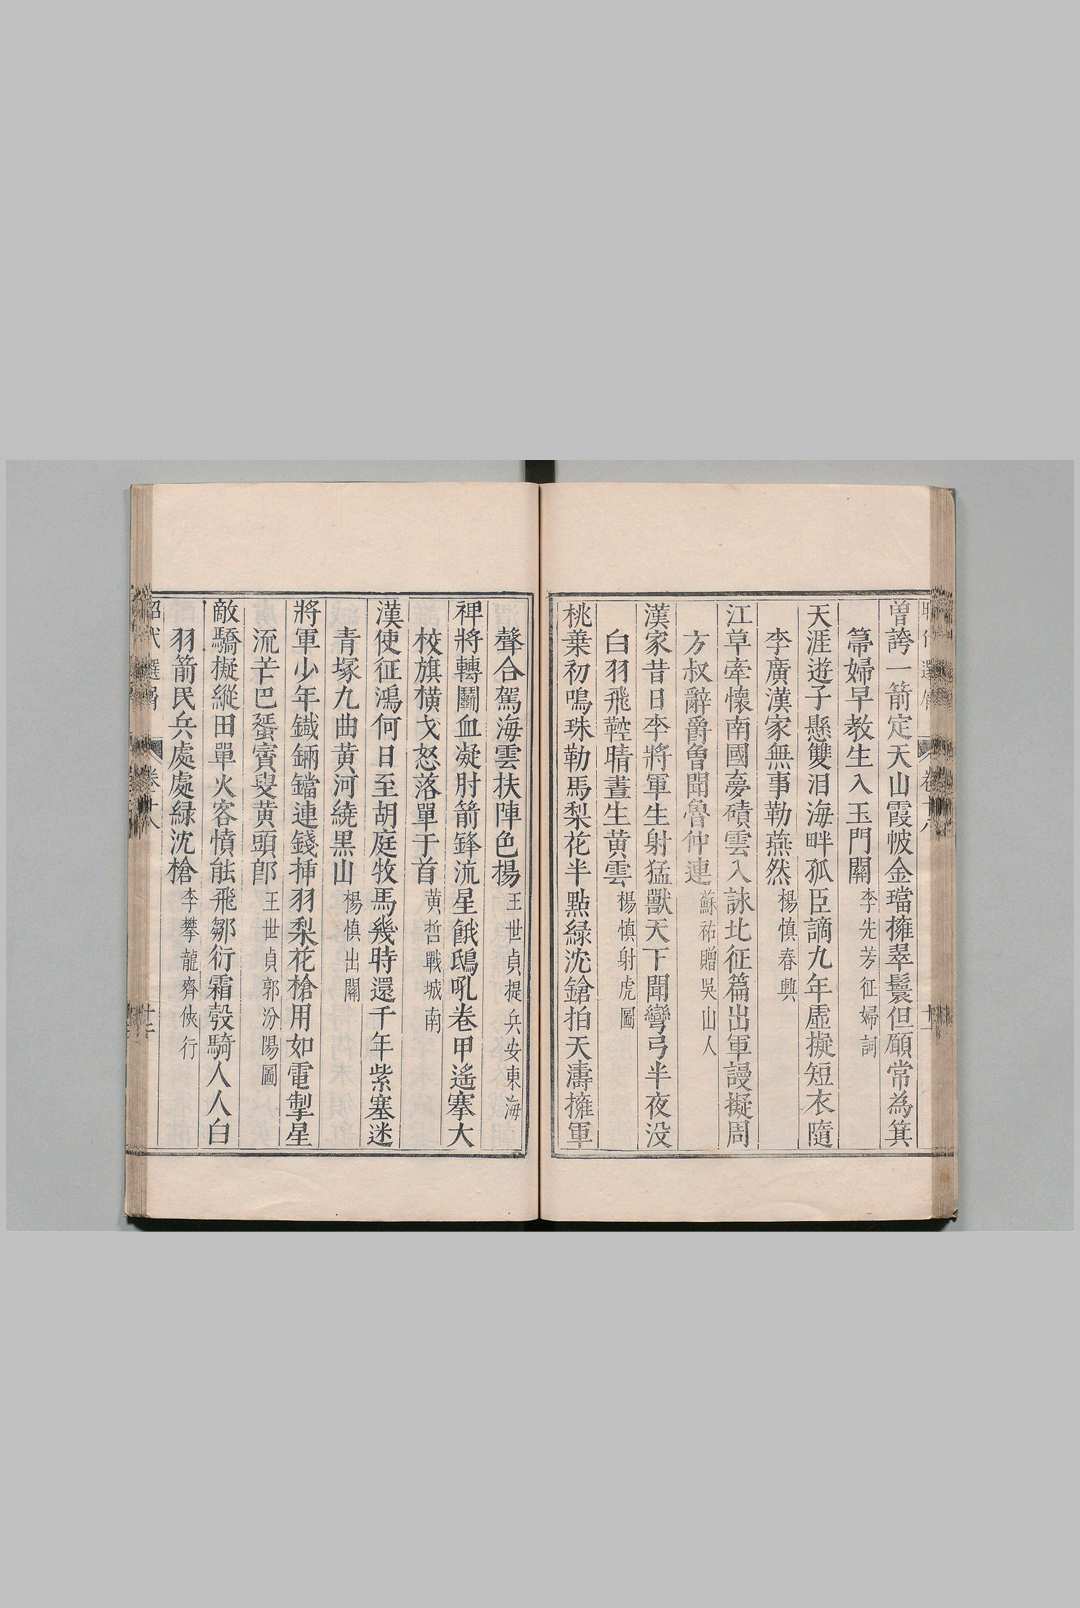 曾誇一箭定天山霞帔金璫擁翠鬟但願常為箕
帚婦早教生入玉門關李先芳征婦詞
天涯遊子懸雙淚海畔孤臣謫九年虛擬短衣隨
李廣漢家無事勒燕然楊慎春興
江草牽懷南國夢磧雲入詠北征篇出軍謾擬周
方叔辭爵曾聞魯仲連蘇祐贈吳山人
漢家昔日李將軍生射猛獸天下聞彎弓半夜没
白羽飛鞚晴晝生黃雲楊慎射虎圖
桃葉初鳴珠勒馬梨花半點綠沈鎗拍天濤擁軍
聲合駕海雲扶陣色揚王世貞提兵安東海
裨將轉鬭血凝肘箭鋒流星餓鴟吼卷甲遙搴大
校旗橫戈怒落單于首黃哲戰城南
漢使征鴻何日至胡庭牧馬幾時還千年紫塞迷
青塚九曲黄河繞黒山楊慎出關
將軍少年鐵鎘鐺連錢揷羽梨花槍用如電掣星
流芒巴𧊵賨叟黄頭郎王世貞郭汾陽圖
敵驕擬縱田單火客憤能飛鄒衍霜彀騎人人白
羽箭民兵處處綠沈槍李攀龍齊俠行
昭代選屑　卷十八　十二